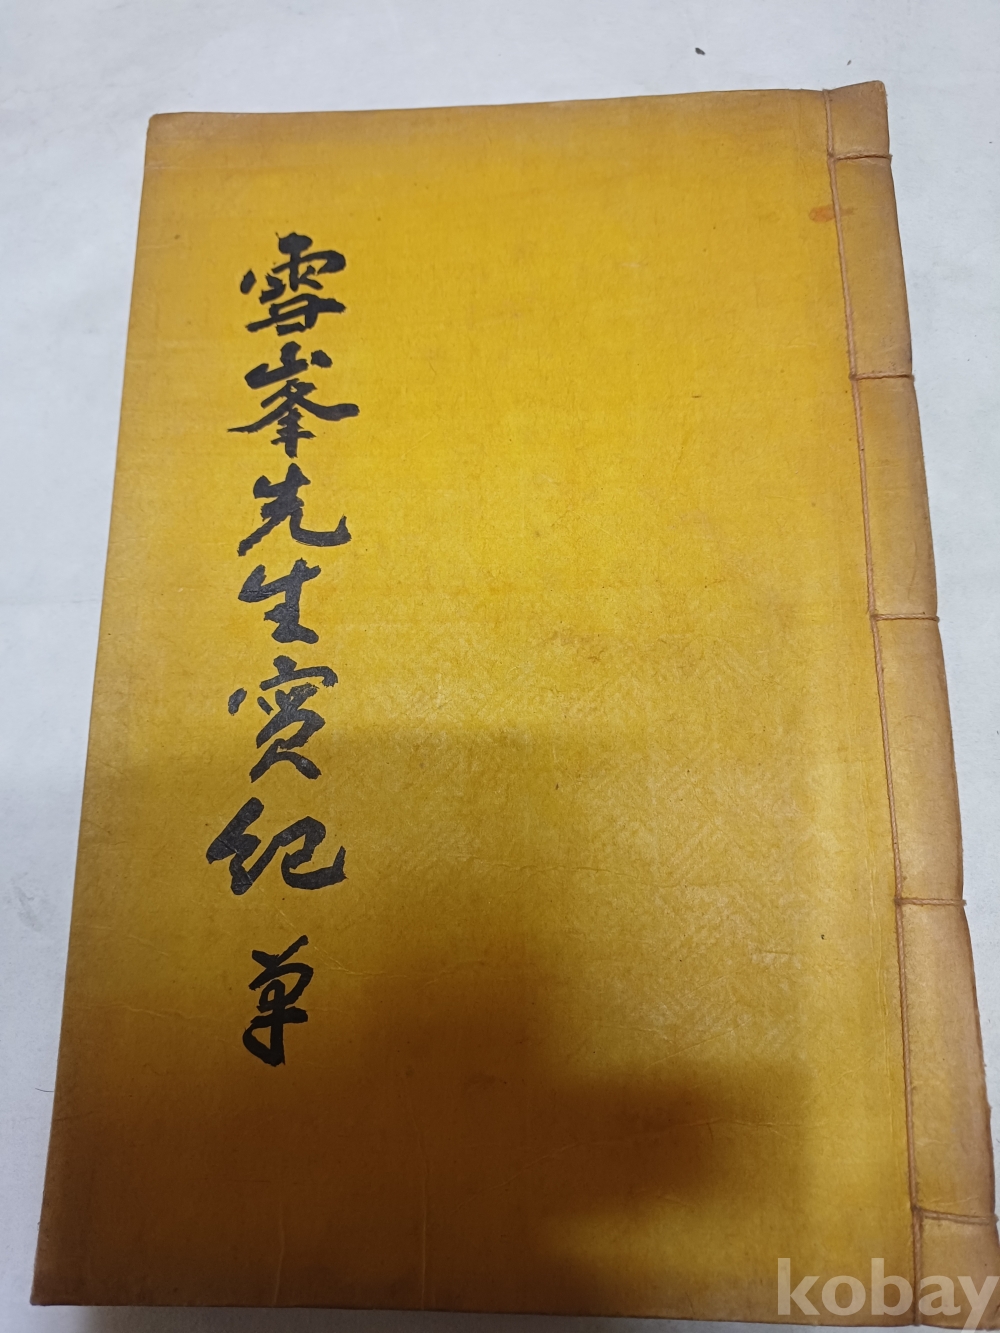 雪峯先生實紀 單
kobay